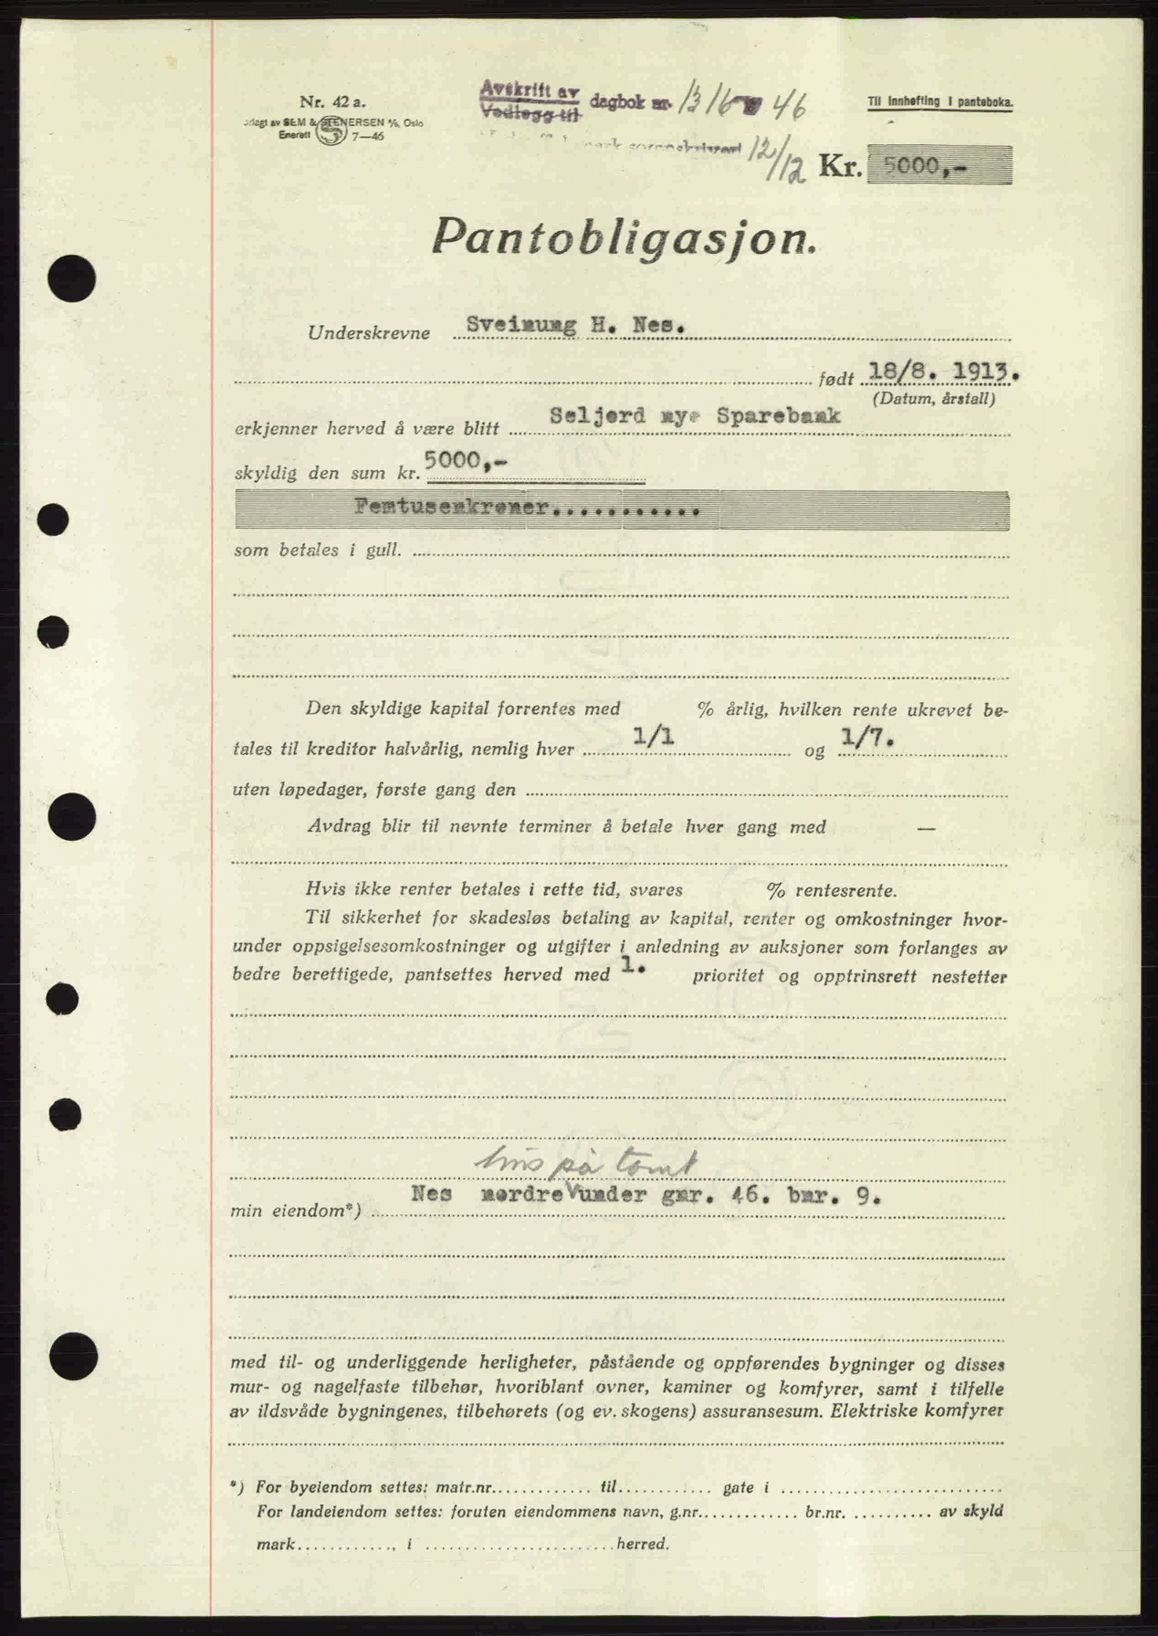 Nr. 42 a.
Avskrift av
Vedlegg til dagbok nr. 1316 46
Til innhefting i panteboka.
SEM & STENERSEN A/S, Oslo
Enerett S 7—46
12/12
Kr. 5000,-
Pantobligasjon.
Underskrevne Sveinung H. Nes.
født 18/8. 1913.
(Datum, årstall)
erkjenner herved å være blitt Seljord nye Sparebank
skyldig den sum kr. 5000,-
Femtusenkroner...........
som betales i gull.
Den skyldige kapital forrentes med % årlig, hvilken rente ukrevet be-
tales til kreditor halvårlig, nemlig hver 1/1 og 1/7.
uten løpedager, første gang den
Avdrag blir til nevnte terminer å betale hver gang med —
Hvis ikke renter betales i rette tid, svares % rentesrente.
Til sikkerhet for skadesløs betaling av kapital, renter og omkostninger hvor-
under oppsigelsesomkostninger og utgifter i anledning av auksjoner som forlanges av
bedre berettigede, pantsettes herved med 1. prioritet og opptrinsrett nestetter
hus på tomt
min eiendom*) Nes nordre V under gnr. 46. bnr. 9.
med til- og underliggende herligheter, påstående og oppførendes bygninger og disses
mur- og nagelfaste tilbehør, hvoriblant ovner, kaminer og komfyrer, samt i tilfelle
av ildsvåde bygningenes, tilbehørets (og ev. skogens) assuransesum. Elektriske komfyrer
*) For byeiendom settes: matr.nr............. til............ gate i ...........................
For landeiendom settes: foruten eiendommens navn, g.nr............. br.nr. .......... av skyld
mark............, i ........................herred.